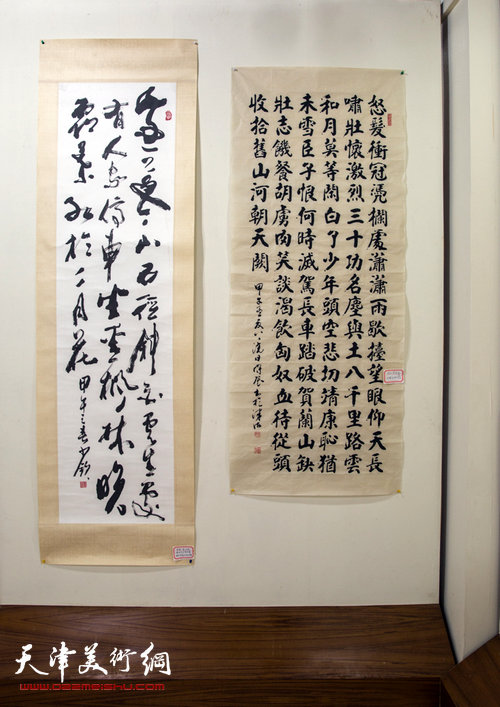 怒髮衝冠凭欄處瀟瀟雨歇擡望眼仰天長
嘯壯懷激烈三十功名塵與土八千里路雲
和月莫等閑白了少年頭空悲切靖康恥猶
未雪臣子恨何時滅駕長車踏破賀蘭山缺
壯志饑餐胡虜肉笑談渴飲匈奴血待從頭
收拾舊山河朝天闕
遠上寒山石徑斜白雲生處
有人家停車坐愛楓林晚
霜葉紅於二月花甲午之春
天津美術網